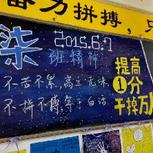 奋力拼搏，只
柒 2015.6.7
班精神
不苦不累，高三无味
不拼不搏，等于白活
提高
1分
干掉万